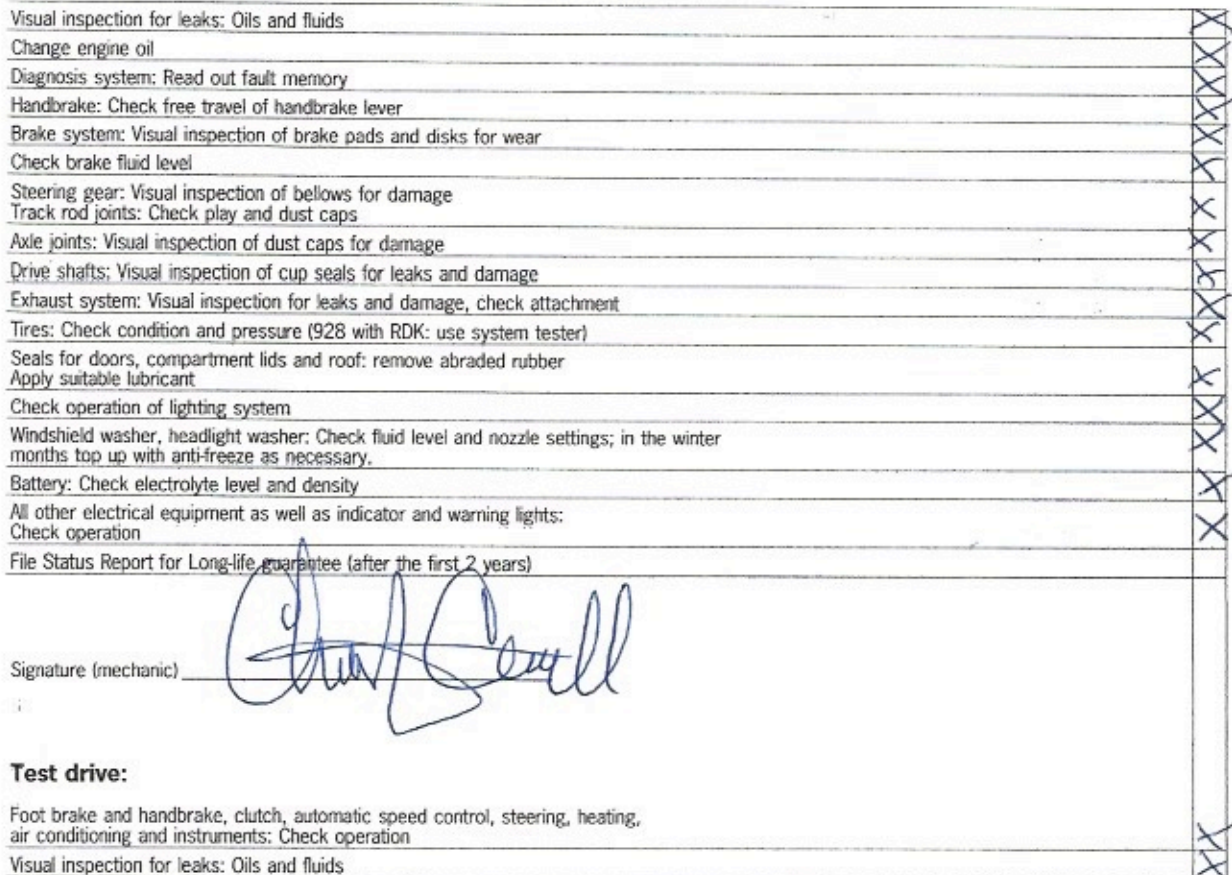 Visual inspection for leaks: Oils and fluids
Change engine oil
Diagnosis system: Read out fault memory
Handbrake: Check free travel of handbrake lever
Brake system: Visual inspection of brake pads and disks for wear
Check brake fluid level
Steering gear: Visual inspection of bellows for damage
Track rod joints: Check play and dust caps
Axle joints: Visual inspection of dust caps for damage
Drive shafts: Visual inspection of cup seals for leaks and damage
Exhaust system: Visual inspection for leaks and damage, check attachment
Tires: Check condition and pressure (928 with RDK: use system tester)
Seals for doors, compartment lids and roof: remove abraded rubber
Apply suitable lubricant
Check operation of lighting system
Windshield washer, headlight washer: Check fluid level and nozzle settings; in the winter
months top up with anti-freeze as necessary.
Battery: Check electrolyte level and density
All other electrical equipment as well as indicator and warning lights:
Check operation
File Status Report for Long-life guarantee (after the first 2 years)
Signature (mechanic)
Test drive:
Foot brake and handbrake, clutch, automatic speed control, steering, heating,
air conditioning and instruments: Check operation
Visual inspection for leaks: Oils and fluids